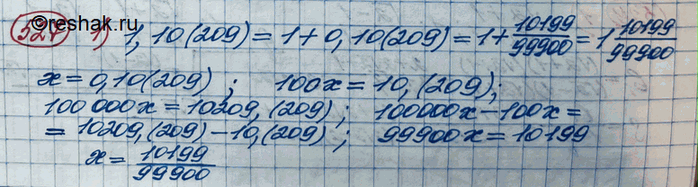 ©reshak.ru
527 1) 1,10(209) = 1 + 0,10(209) = 1 + 10199/99900 = 1 10199/99900
x = 0,10(209) ; 100x = 10,(209);
100 000x = 10209,(209) ; 100000x - 100x =
= 10209,(209) - 10,(209) ; 99900x = 10199
x = 10199/99900